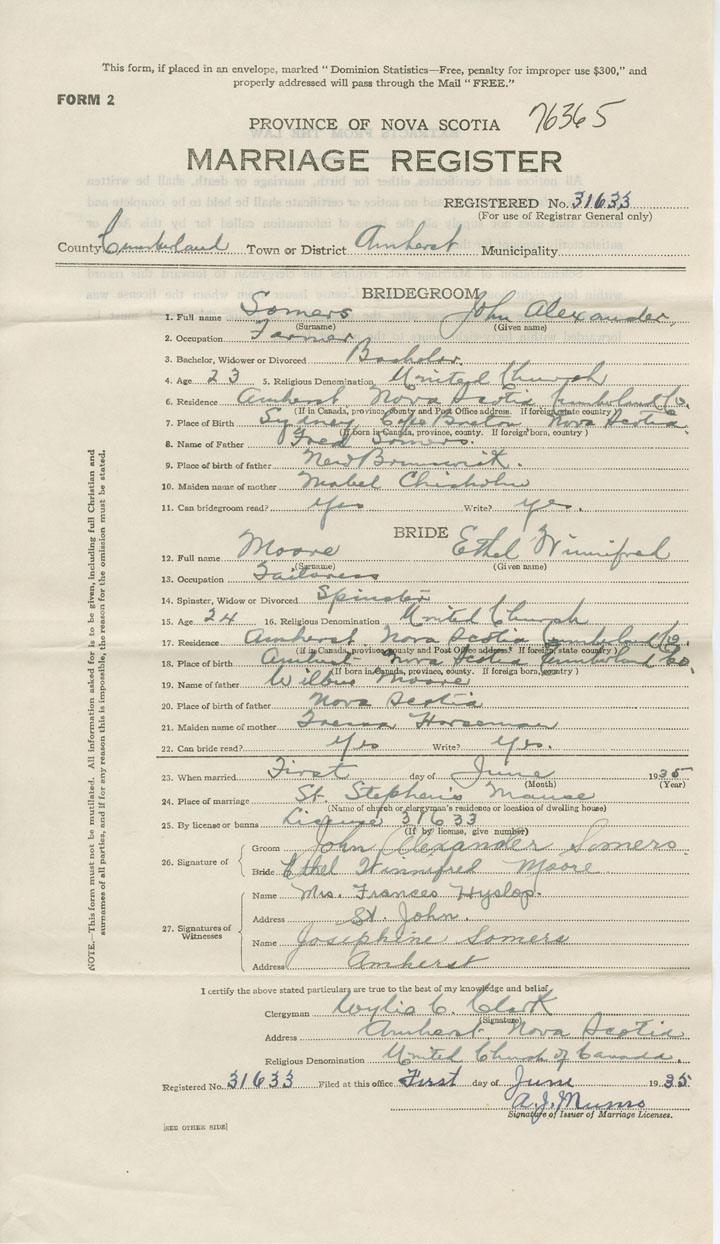 This form, if placed in an envelope, marked "Dominion Statistics—Free, penalty for improper use $300," and
properly addressed will pass through the Mail "FREE."
FORM 2
76365
PROVINCE OF NOVA SCOTIA
MARRIAGE REGISTER
REGISTERED No. 31633
(For use of Registrar General only)
County Cumberland Town or District Amherst Municipality
BRIDEGROOM
1. Full name Somers John Alexander
(Surname) (Given name)
2. Occupation Farmer
3. Bachelor, Widower or Divorced Bachelor
4. Age 23 5. Religious Denomination United Church
6. Residence Amherst Nova Scotia Cumberland Co.
(If in Canada, province, county and Post Office address. If foreign, state country)
7. Place of Birth Sydney Cape Breton Nova Scotia
(If born in Canada, province, county. If foreign born, country)
8. Name of Father Fred Somers.
9. Place of birth of father New Brunswick.
10. Maiden name of mother Mabel Chisholm
11. Can bridegroom read? Yes Write? yes.
BRIDE
12. Full name Moore Ethel Winnifred
(Surname) (Given name)
13. Occupation Tailoress
14. Spinster, Widow or Divorced Spinster
15. Age 24 16. Religious Denomination United Church
17. Residence Amherst Nova Scotia Cumberland Co.
(If in Canada, province, county and Post Office address. If foreign, state country)
18. Place of birth Amherst Nova Scotia Cumberland Co.
(If born in Canada, province, county. If foreign born, country)
19. Name of father Wilbur Moore
20. Place of birth of father Nova Scotia
21. Maiden name of mother Horseman
22. Can bride read? Yes Write? Yes.
23. When married First day of June 1935
(Month) (Year)
24. Place of marriage St. Stephen's Manse
(Name of church or clergyman's residence or location of dwelling house)
25. By license or banns License 31633
(If by license, give number)
26. Signature of
Groom John Alexander Somers
Bride Ethel Winnifred Moore.
27. Signatures of Witnesses
Name Mrs. Frances Hyslop.
Address St. John.
Name Josephine Somers
Address Amherst
NOTE.—This form must not be mutilated. All information asked for is to be given, including full Christian and
surnames of all parties, and if for any reason this is impossible, the reason for the omission must be stated.
I certify the above stated particulars are true to the best of my knowledge and belief.
Clergyman Wylie C. Clark
(Signature)
Address Amherst Nova Scotia
Religious Denomination United Church of Canada.
Registered No. 31633 Filed at this office First day of June 1935
A. J. Munro
Signature of Issuer of Marriage Licenses.
[SEE OTHER SIDE]